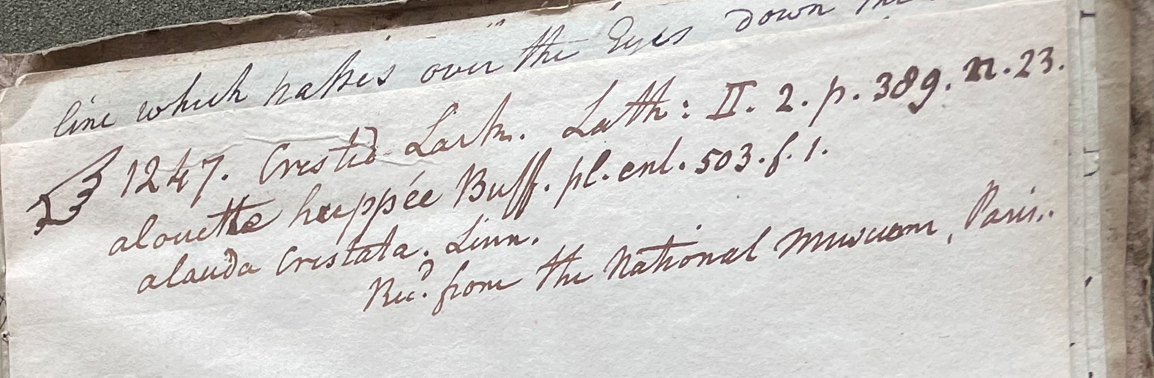 line which passes over the Eyes down the
☞ 1247. Crested Lark. Lath: II. 2. p. 389. n. 23.
alouette huppée Buff. pl. enl. 503. f. 1.
alauda Cristata. Linn.
Recd. from the National Museum, Paris.